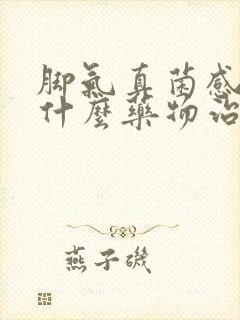 脚氣真菌感
什麼藥物治
燕子磯